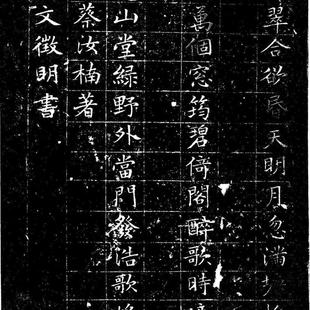 翠合欲昏天明月忽滿
萬個窓筠碧倚閣醉歌時
山堂綠野外當門發浩歌
蔡汝楠著
文徵明書